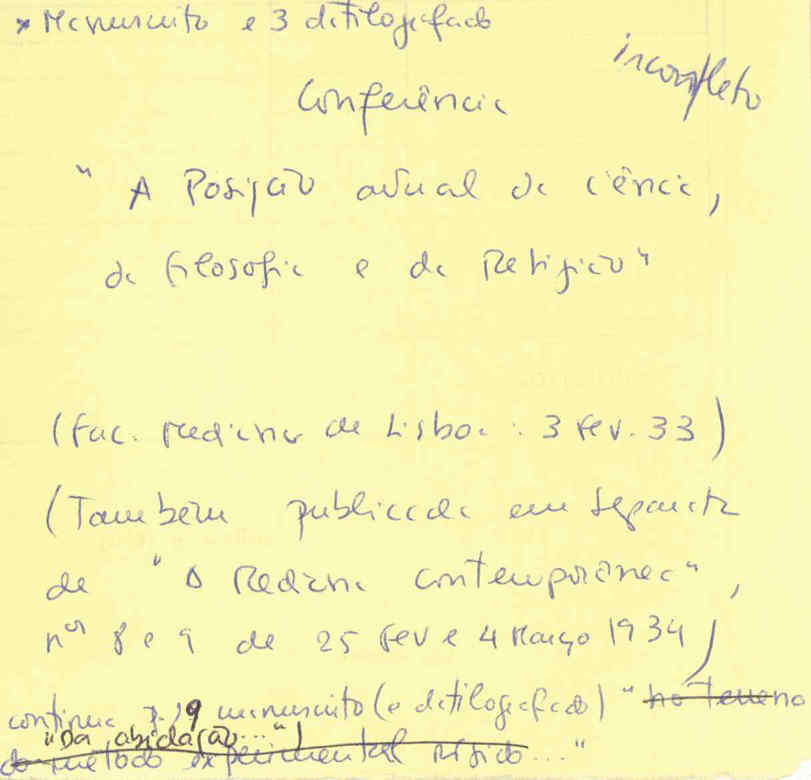 * Manuscrito e 3 datilografado
incompleto
Conferência
"A Posição actual da Ciência,
da filosofia e da Religião"
(Fac. Medicina de Lisboa: 3 Fev. 33)
(Também publicada em Separata
de "A Medicina Contemporânea",
nos 8 e 9 de 25 Fev e 4 Março 1934)
continua 9 manuscrito (e datilografado) "no terreno
"Da ...")
do método experimental rígido..."